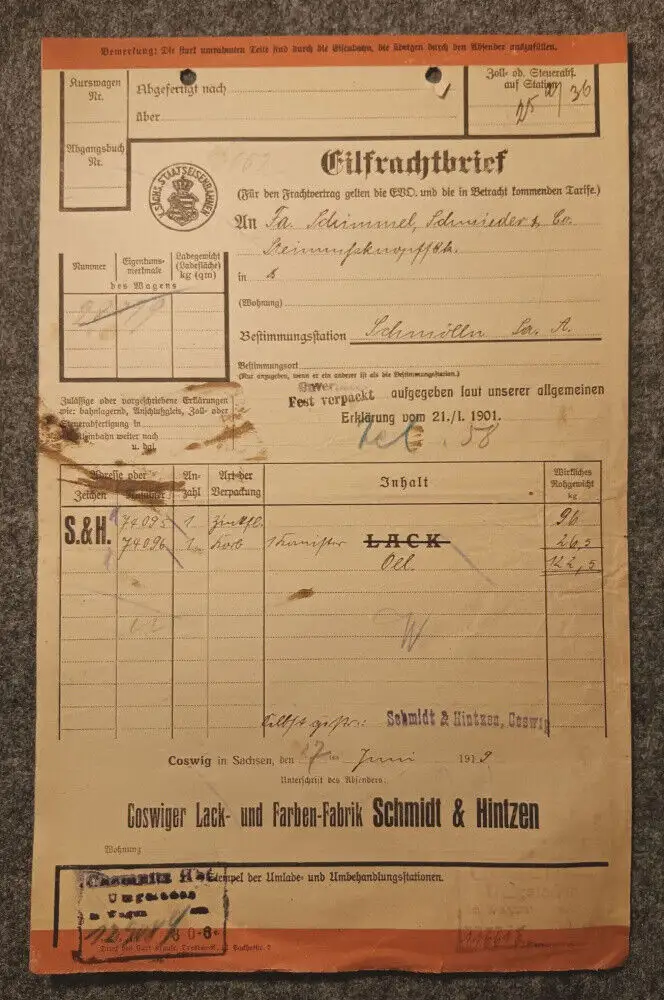 Bemerkung: Die stark umrahmten Teile sind durch die Eisenbahn, die übrigen durch den Absender auszufüllen.
Kurswagen Nr.
Abgefertigt nach
über
Zoll- od. Steuerabf. auf Station
25 36
Abgangsbuch Nr.
K. SÄCHS. STAATSEISENBAHNEN
Eilfrachtbrief
(Für den Frachtvertrag gelten die EVO. und die in Betracht kommenden Tarife.)
An Fa. Schimmel, Schmieder & Co.
in
(Wohnung)
Nummer
Eigentumsmerkmale
Ladegewicht (Ladefläche) kg (qm)
des Wagens
Bestimmungsstation Schmölln Sa. A.
Bestimmungsort
(Nur anzugeben, wenn er ein anderer ist als die Bestimmungsstation.)
Zulässige oder vorgeschriebene Erklärungen
wie: bahnlagernd, Anschlußgleis, Zoll- oder
Steuerabfertigung in
Eisenbahn weiter nach
u. dgl.
Fest verpackt aufgegeben laut unserer allgemeinen
Erklärung vom 21./I. 1901.
58
Adresse oder
Zeichen Nummer
Anzahl
Art der Verpackung
Inhalt
Wirkliches Rohgewicht kg
S.&H. 74095 1 96
74096 1 Korb 1 Kanister LACK 26,5
Oel. 122,5
Selbst gestr: Schmidt & Hintzen, Coswig
Coswig in Sachsen, den 7 ten Juni 1919
Unterschrift des Absenders:
Coswiger Lack- und Farben-Fabrik Schmidt & Hintzen
Wohnung
Stempel der Umlade- und Umbehandlungsstationen.
Chemnitz Hbf
Umgeladen
in Wagen